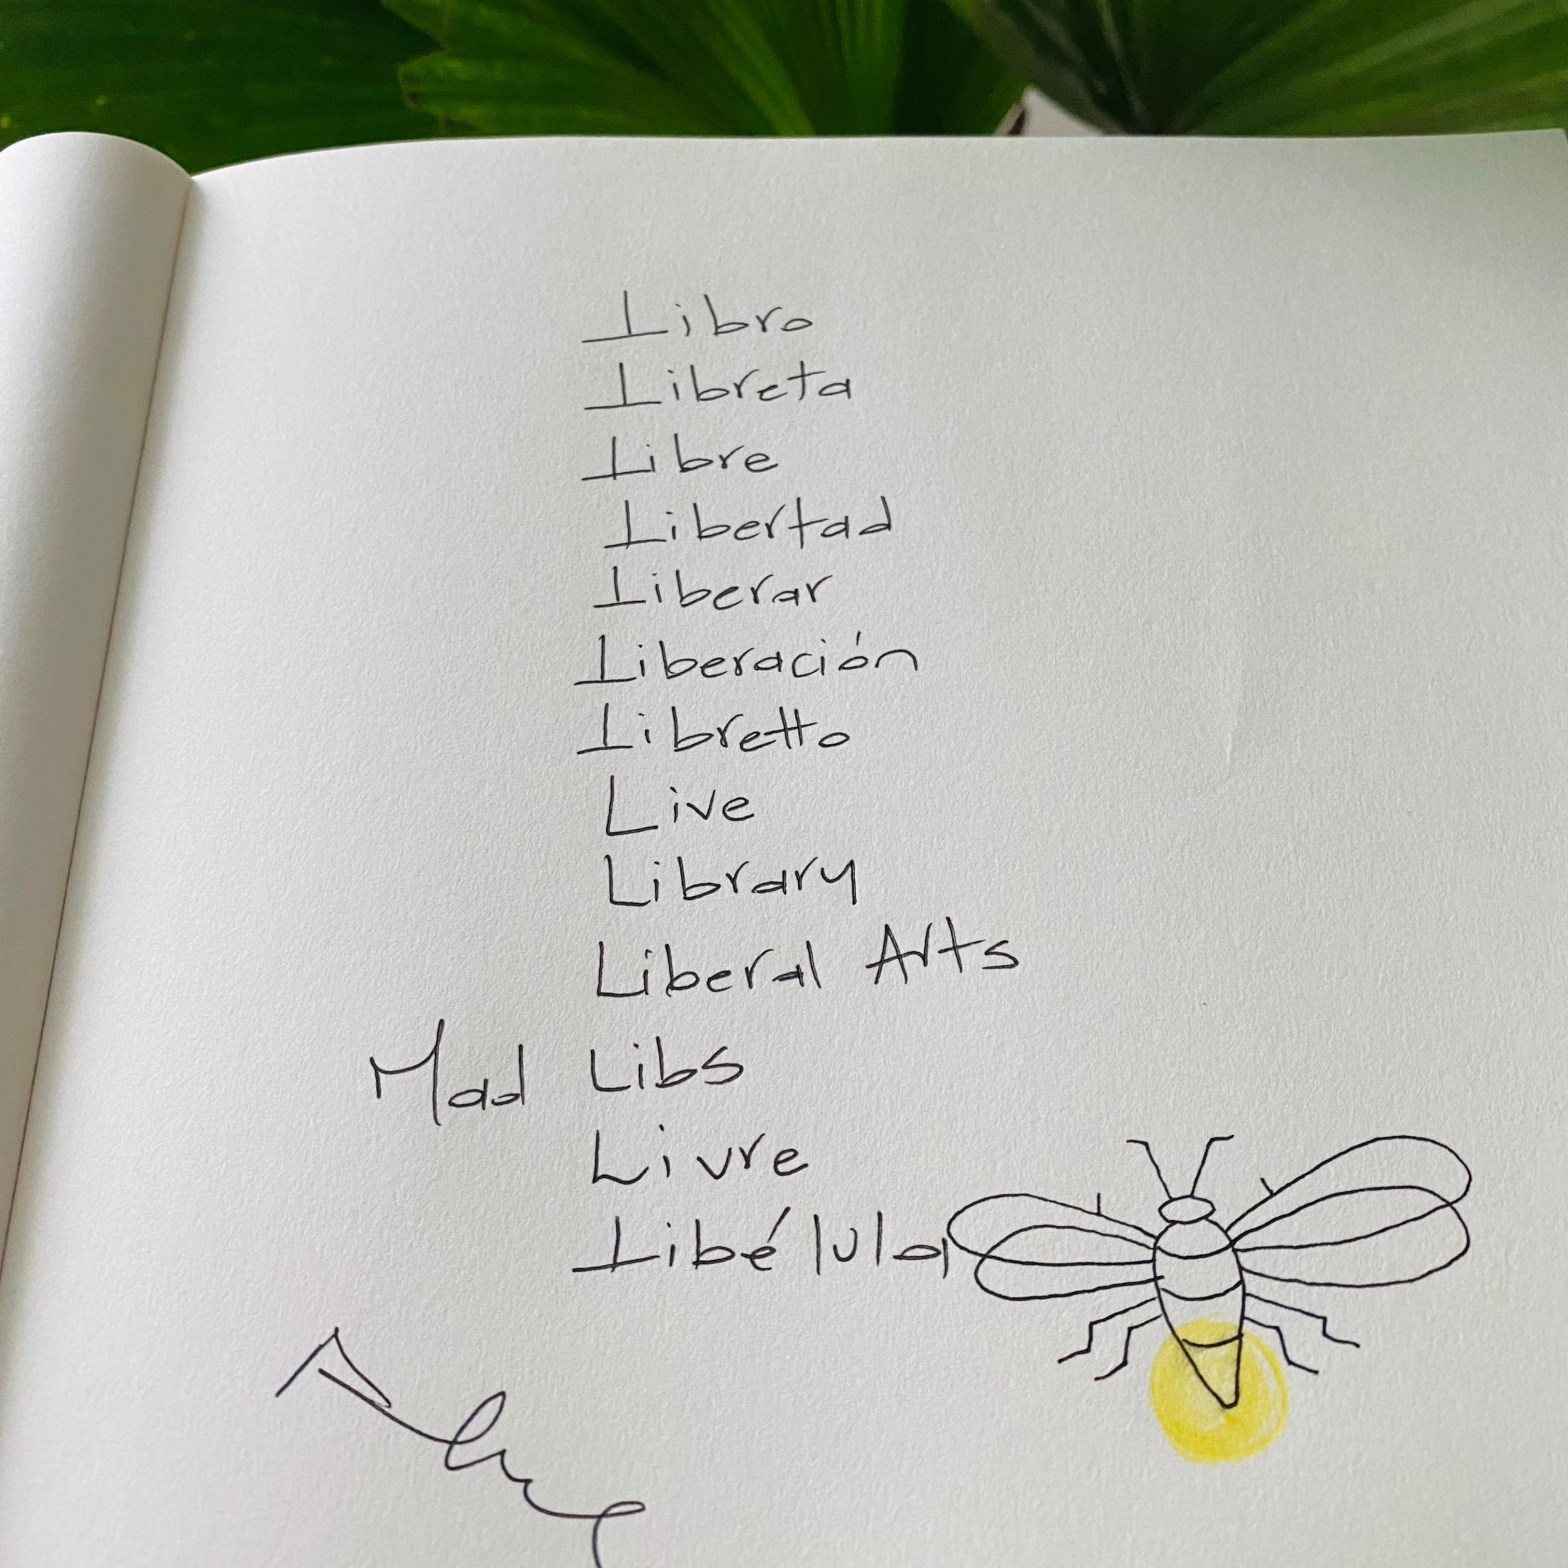 Libro
Libreta
Libre
Libertad
Liberar
Liberación
Libretto
Live
Library
Liberal Arts
Mad Libs
Livre
Libélula